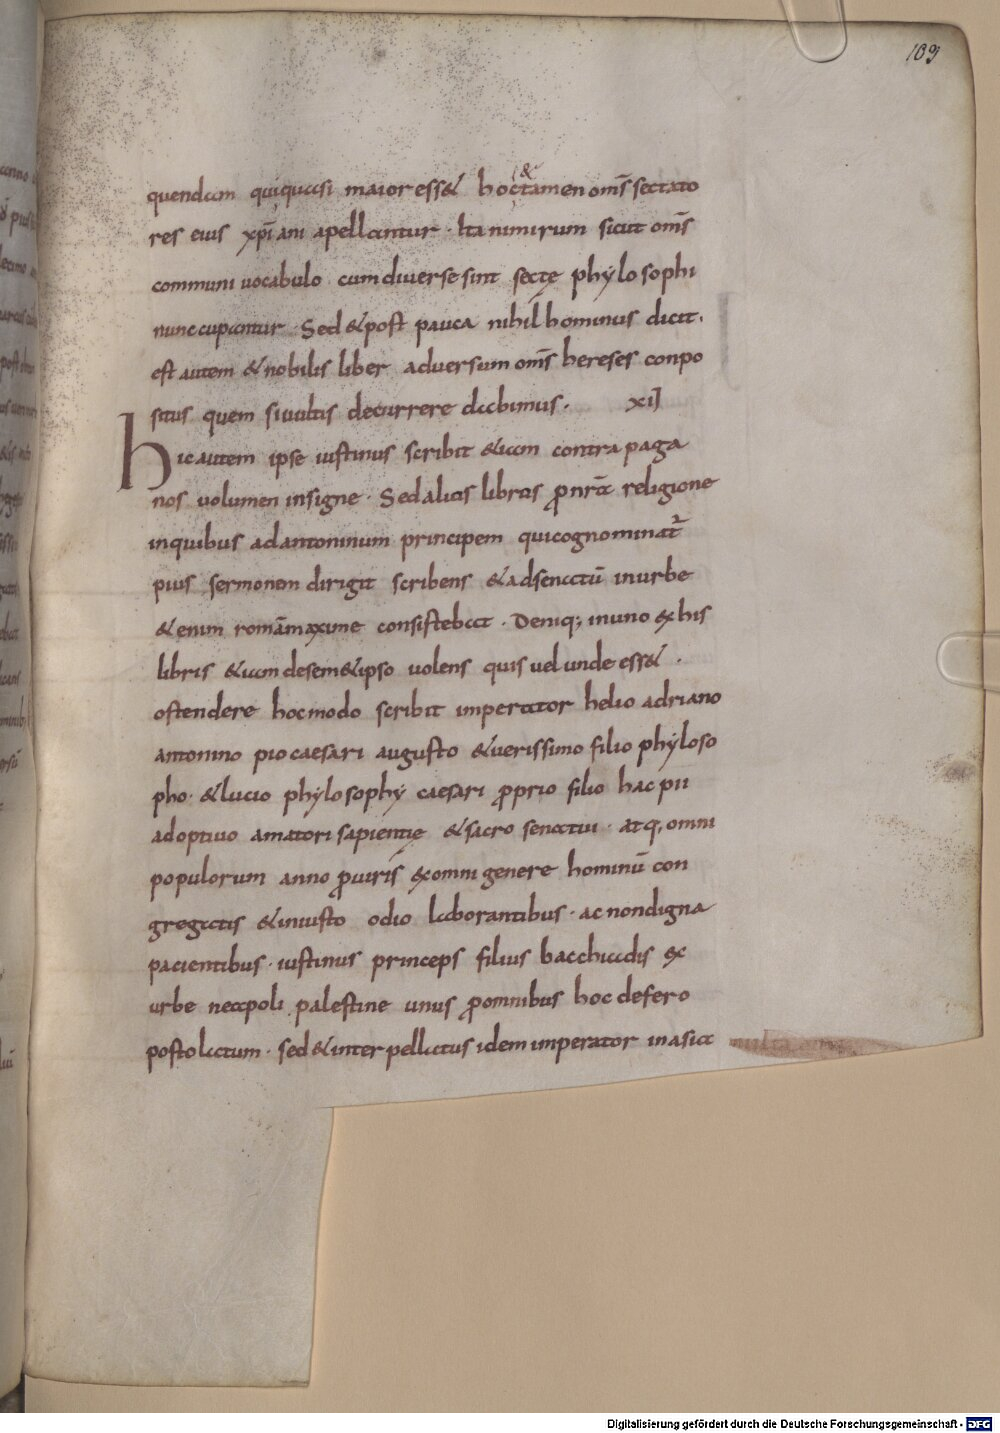 109
quendam quiquasi maior ess& hoc&tamen om̄s sectato
res eius xp̄iani apellantur · Ita nimirum sicut om̄s
communi uocabulo cum diverse sint sectę phylosophi
nunccupantur · Sed & post pauca nihil hominus dicit.
est autem & nobilis liber adversum om̄s hereses conpo
situs quem si uultis decurrere dabimus. XII
hic autem ipse iustinus scribit &iam contra paga
nos uolumen insigne · Sed alias libros ꝓ nr̄a religione
in quibus ad antoninum principem qui cognominat̄
pius sermonem dirigit scribens & ad senatū in urbe
&enim romā maxime consistebat · Deniq; in uno ex his
libris &iam desem&ipso uolens quis uel unde ess& .
ostendere hoc modo scribit imperator helio adriano
antonino pio caesari augusto & verissimo filio phyloso
pho · & lucio phylosophy caesari ꝓprio filio hac pii
adoptivo amatori sapientię & sacro senatui · atq; omni
populorum anno ꝓ uiris ex omni genere hominū con
gregatis & iniusto odio laborantibus · ac non digna
pacientibus · iustinus princeps filius bacchiadis ex
urbe neapoli palestine unus ꝓ omnibus hoc defero
postolatum · sed & interpellatus idem imperator in asia
Digitalisierung gefördert durch die Deutsche Forschungsgemeinschaft - DFG